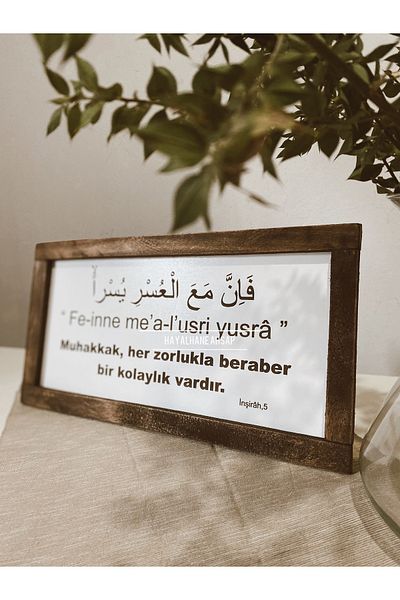 فَاِنَّ مَعَ الْعُسْرِ يُسْراًۙ
“ Fe-inne me’a-l’usri yusrâ ”
HAYALHANE AHŞAP
Muhakkak, her zorlukla beraber
bir kolaylık vardır.
İnşirâh,5